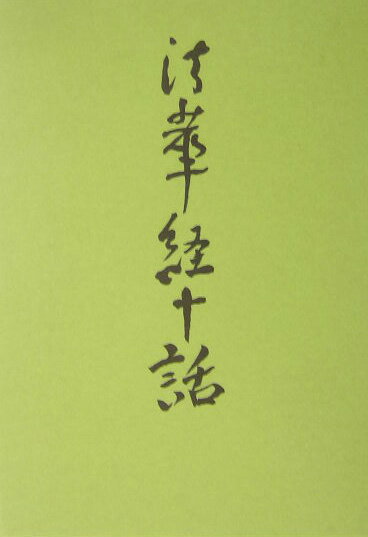 法華経十話